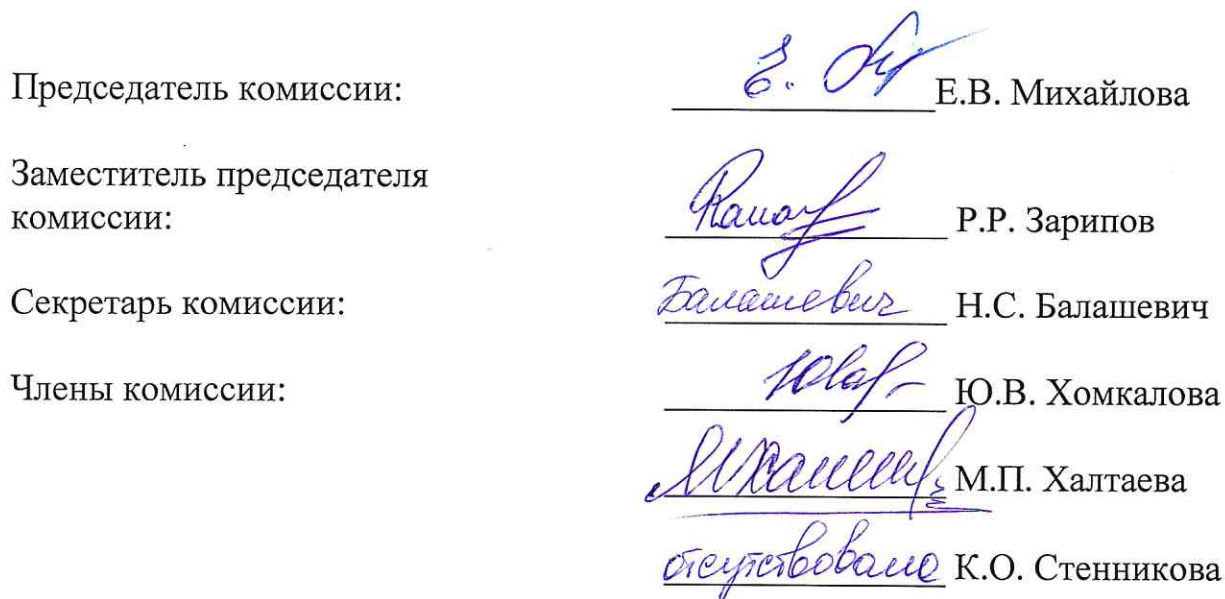 Председатель комиссии: Е.В. Михайлова
Заместитель председателя
комиссии: Р.Р. Зарипов
Секретарь комиссии: Балашевич Н.С. Балашевич
Члены комиссии: Ю.В. Хомкалова
М.П. Халтаева
отсутствовала К.О. Стенникова